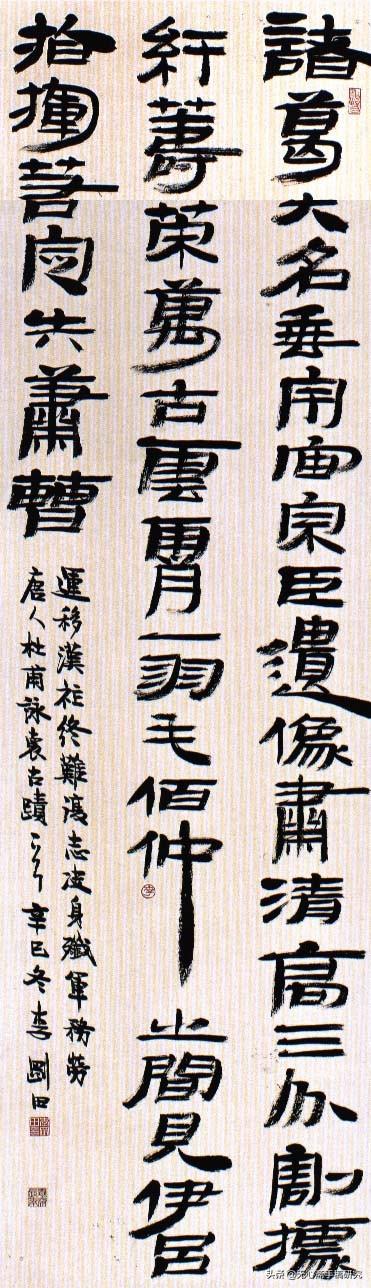 諸葛大名垂宇宙宗臣遺像肅清高三分割據
紆籌策萬古雲霄一羽毛伯仲之間見伊呂
指揮若定失蕭曹
運移漢祚終難復志決身殲軍務勞
唐人杜甫詠懷古蹟 辛巳冬李剛田
头条 @无心斋手稿研究